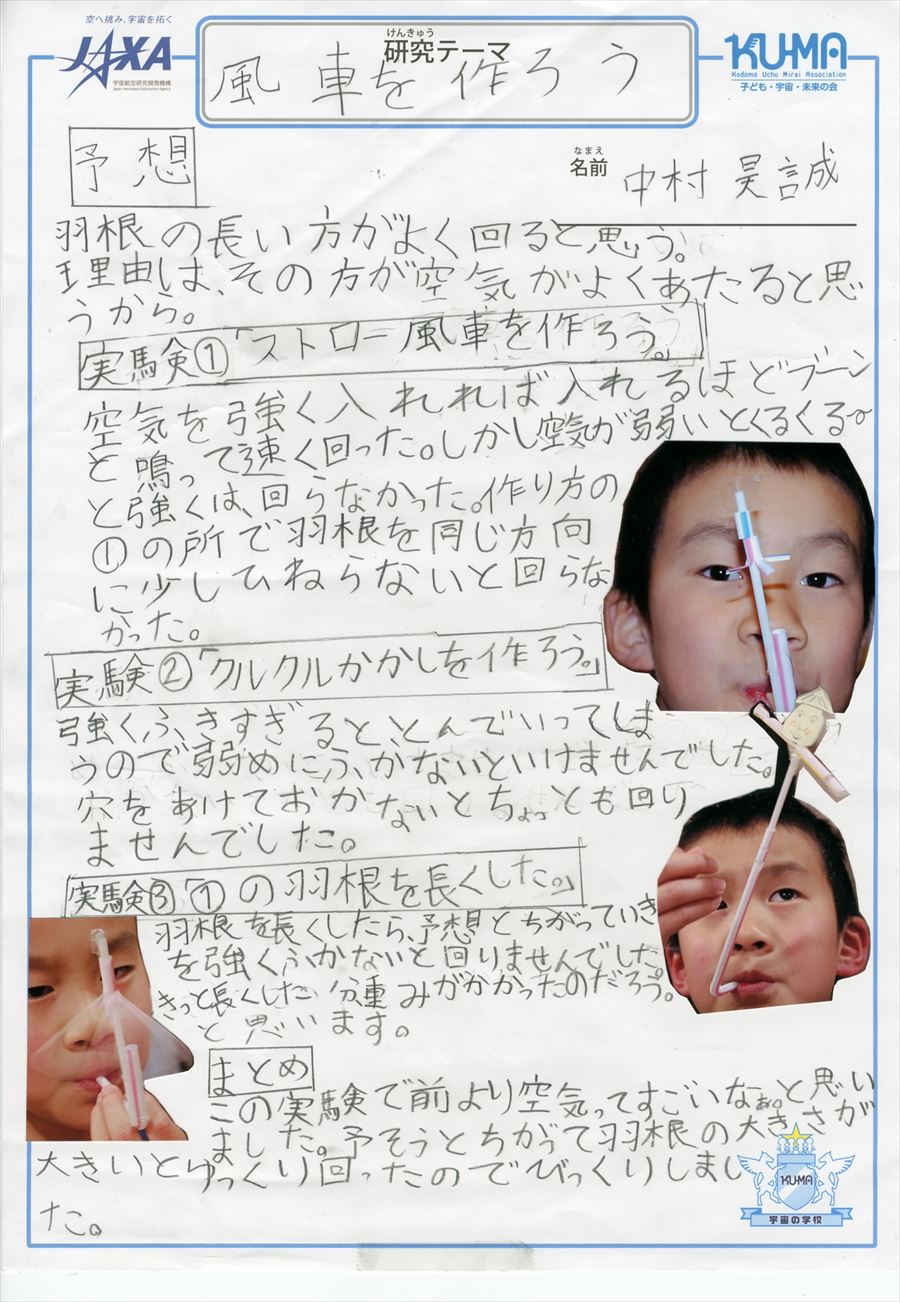 空へ挑み、宇宙を拓く
JAXA
宇宙航空研究開発機構
Japan Aerospace Exploration Agency
けんきゅう
研究テーマ
風車を作ろう
KU-MA
Kodomo Uchu Mirai Association
子ども・宇宙・未来の会
予想
なまえ
名前
中村 昊誠
羽根の長い方がよく回ると思う。
理由は、その方が空気がよくあたると思
うから。
実験①「ストロー風車を作ろう。」
空気を強く入れれば入れるほどブーン
と鳴って速く回った。しかし空気が弱いとくるくる〜
と強くは、回らなかった。作り方の
①の所で羽根を同じ方向
に少しひねらないと回らな
かった。
実験②「クルクルかかしを作ろう。」
強くふきすぎると、とんでいってしま
うので弱めにふかないといけませんでした。
穴をあけておかないとちょっとも回り
ませんでした。
実験③「①の羽根を長くした。」
羽根を長くしたら、予想とちがっていき
を強くふかないと回りませんでした
きっと長くした分重みがかかったのだろう。
と思います。
まとめ
この実験で前より空気ってすごいなぁ。と思い
ました。予そうとちがって羽根の大きさが
大きいとゆっくり回ったのでびっくりしまし
た。
KU-MA
宇宙の学校